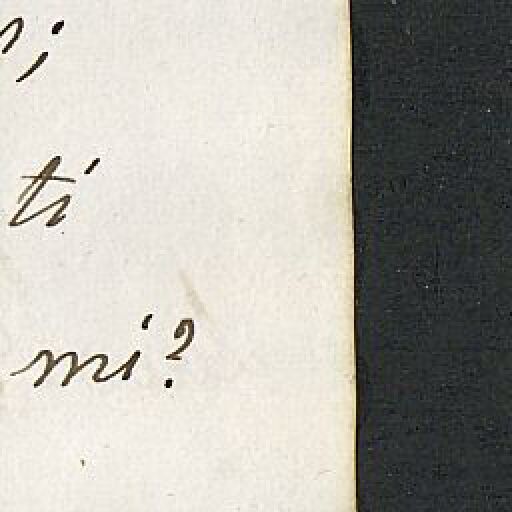 ;
ti
mi?